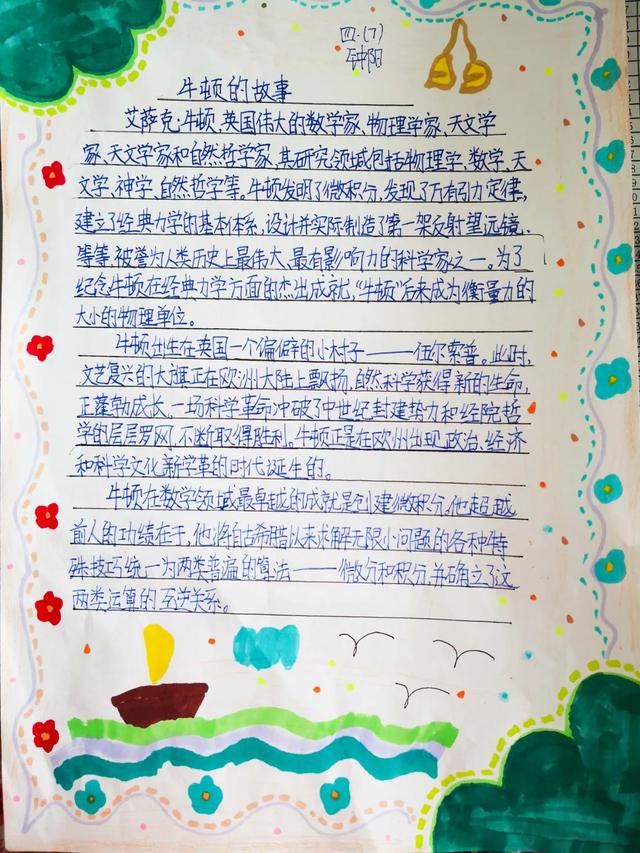 四.(7)
钟阳
牛顿的故事
艾萨克·牛顿、英国伟大的数学家、物理学家、天文学
家、天文学家和自然哲学家,其研究领域包括物理学、数学、天
文学、神学、自然哲学等。牛顿发明了微积分,发现了万有引力定律,
建立了经典力学的基本体系,设计并实际制造了第一架反射望远镜,
等等,被誉为人类历史上最伟大、最有影响力的科学家之一。为了
纪念牛顿在经典力学方面的杰出成就,“牛顿”后来成为衡量力的
大小的物理单位。
牛顿出生在英国一个偏僻的小村子——伍尔索普。此时,
文艺复兴的大旗正在欧洲大陆上飘扬,自然科学获得新的生命,
正蓬勃成长,一场科学革命冲破了中世纪封建势力和经院哲
学的层层罗网,不断取得胜利。牛顿正是在欧州出现政治、经济
和科学文化新学革的时代诞生的。
牛顿在数学领域最卓越的成就是创建微积分,他超越
前人的功绩在于,他将自古希腊以来求解无限小问题的各种特
殊技巧统一为两类普遍的算法——微分和积分,并确立了这
两类运算的互逆关系。